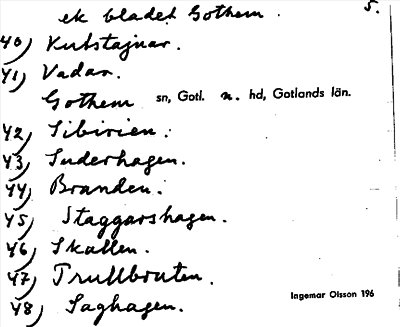 ek bladet Gothem. 5.
40) Kutstajnar.
41) Vadar.
Gothem sn, Gotl. n. hd, Gotlands län.
42) Sibirien.
43) Suderhagen.
44) Branden.
45) Staggarshagen.
46) Skallen.
47) Trullbrouten.
Ingemar Olsson 196
48) Saghagen.